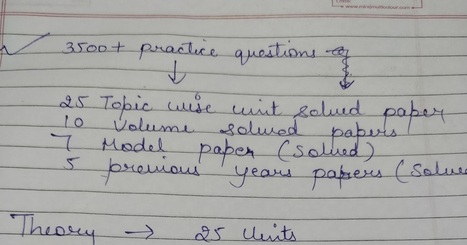 3500+ practice questions
↓ ↓
25 Topic wise unit solved paper
10 Volume solved papers
7 Model paper (Solved)
5 previous years papers (Solve
Theory → 25 Units